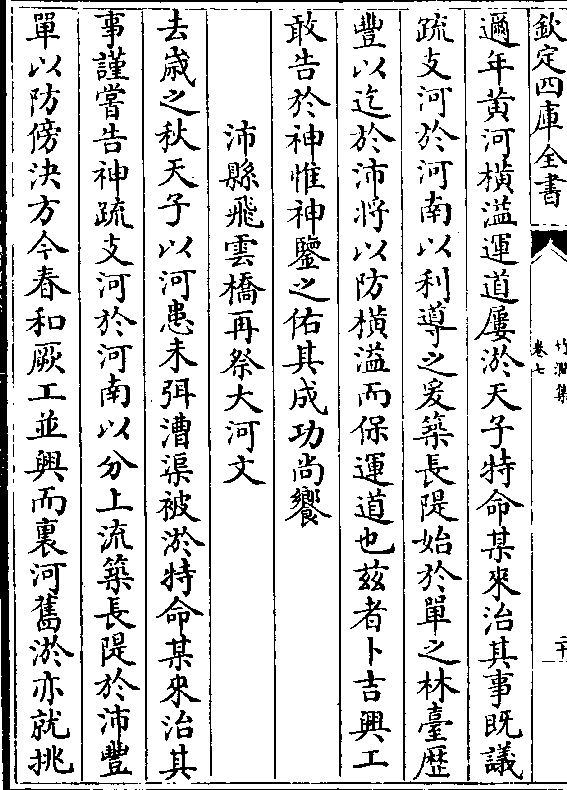 欽定四庫全書
竹澗集
卷七
邇年黄河横溢運道屢淤天子特命某來治其事既議
疏支河於河南以利導之爰築長隄始於單之林臺歷
豐以迄於沛將以防横溢而保運道也茲者卜吉興工
敢告於神惟神鑒之佑其成功尚饗
沛縣飛雲橋再祭大河文
去歳之秋天子以河患未弭漕渠被淤特命某來治其
事謹嘗告神疏支河於河南以分上流築長隄於沛豐
單以防傍决方今春和厥工並興而裏河舊淤亦就挑